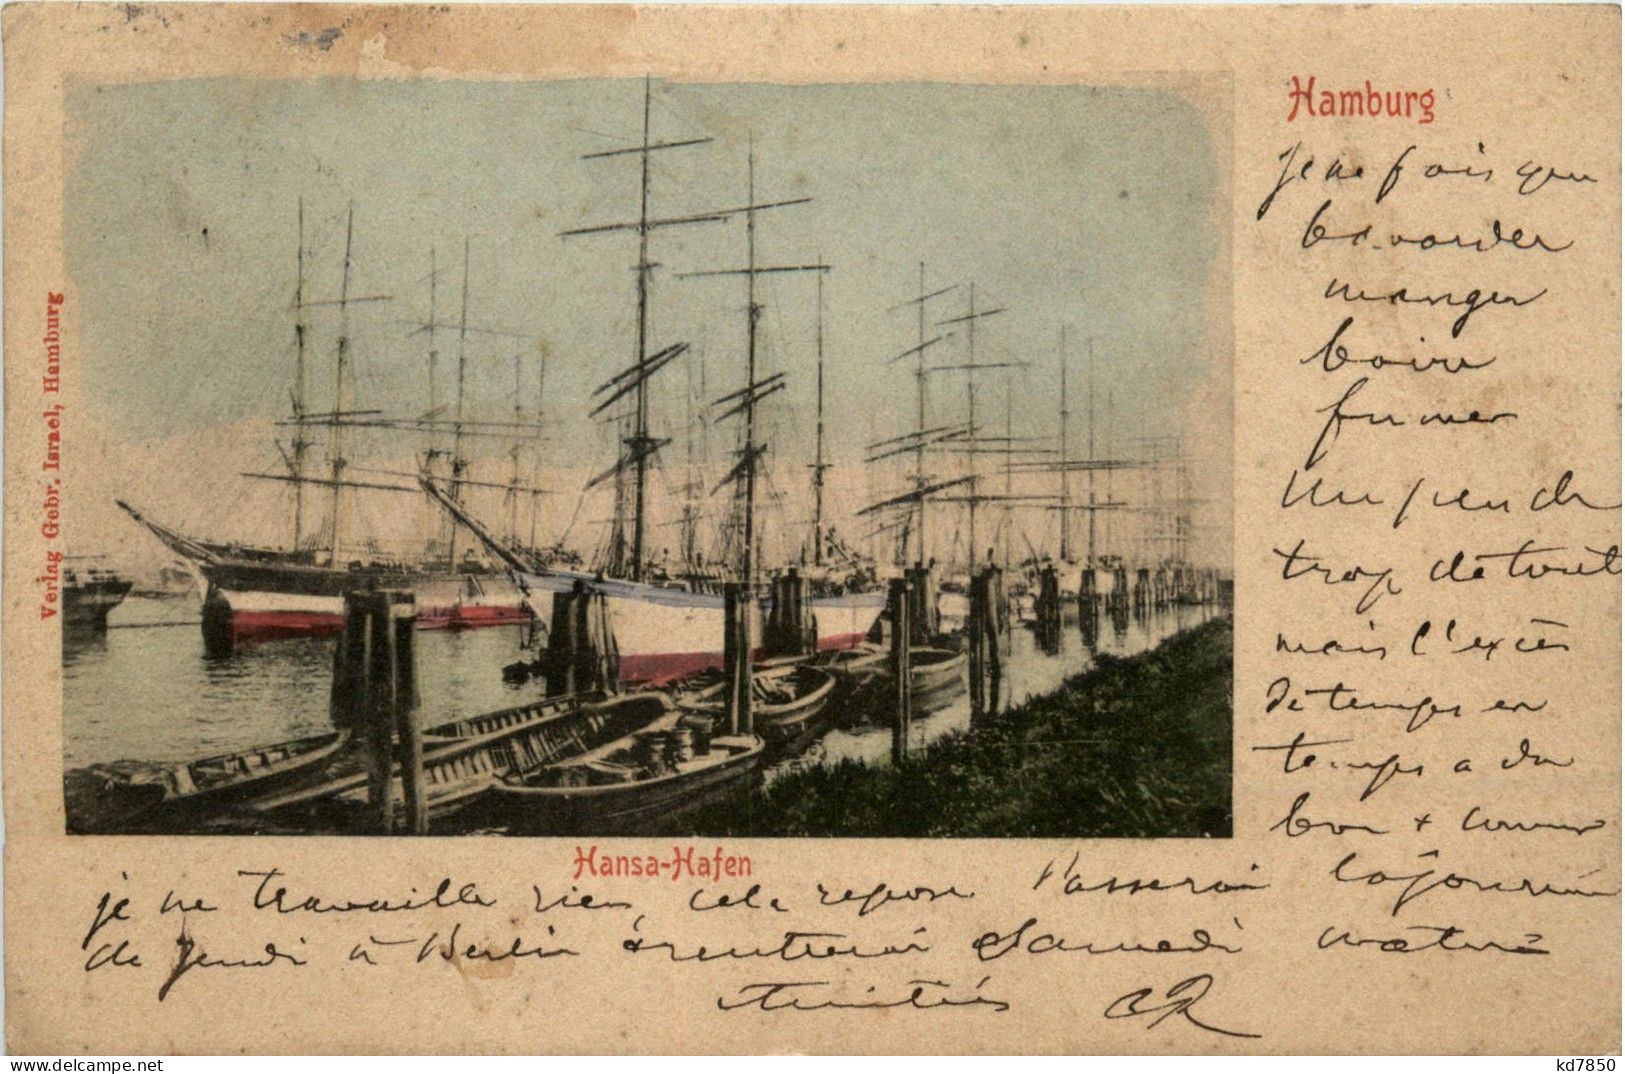 Hamburg
Je ne fais que
bavarder
manger
boire
fumer
Un peu de
trop de tout
mais l'excès
de temps en
temps a du
bon +
Verlag Gebr. Israel, Hamburg
Hansa-Hafen
je ne travaille rien, cela repose Passerai la journée
de Jeudi à Berlin & rentrerai Samedi
Amitiés CR
kd7850